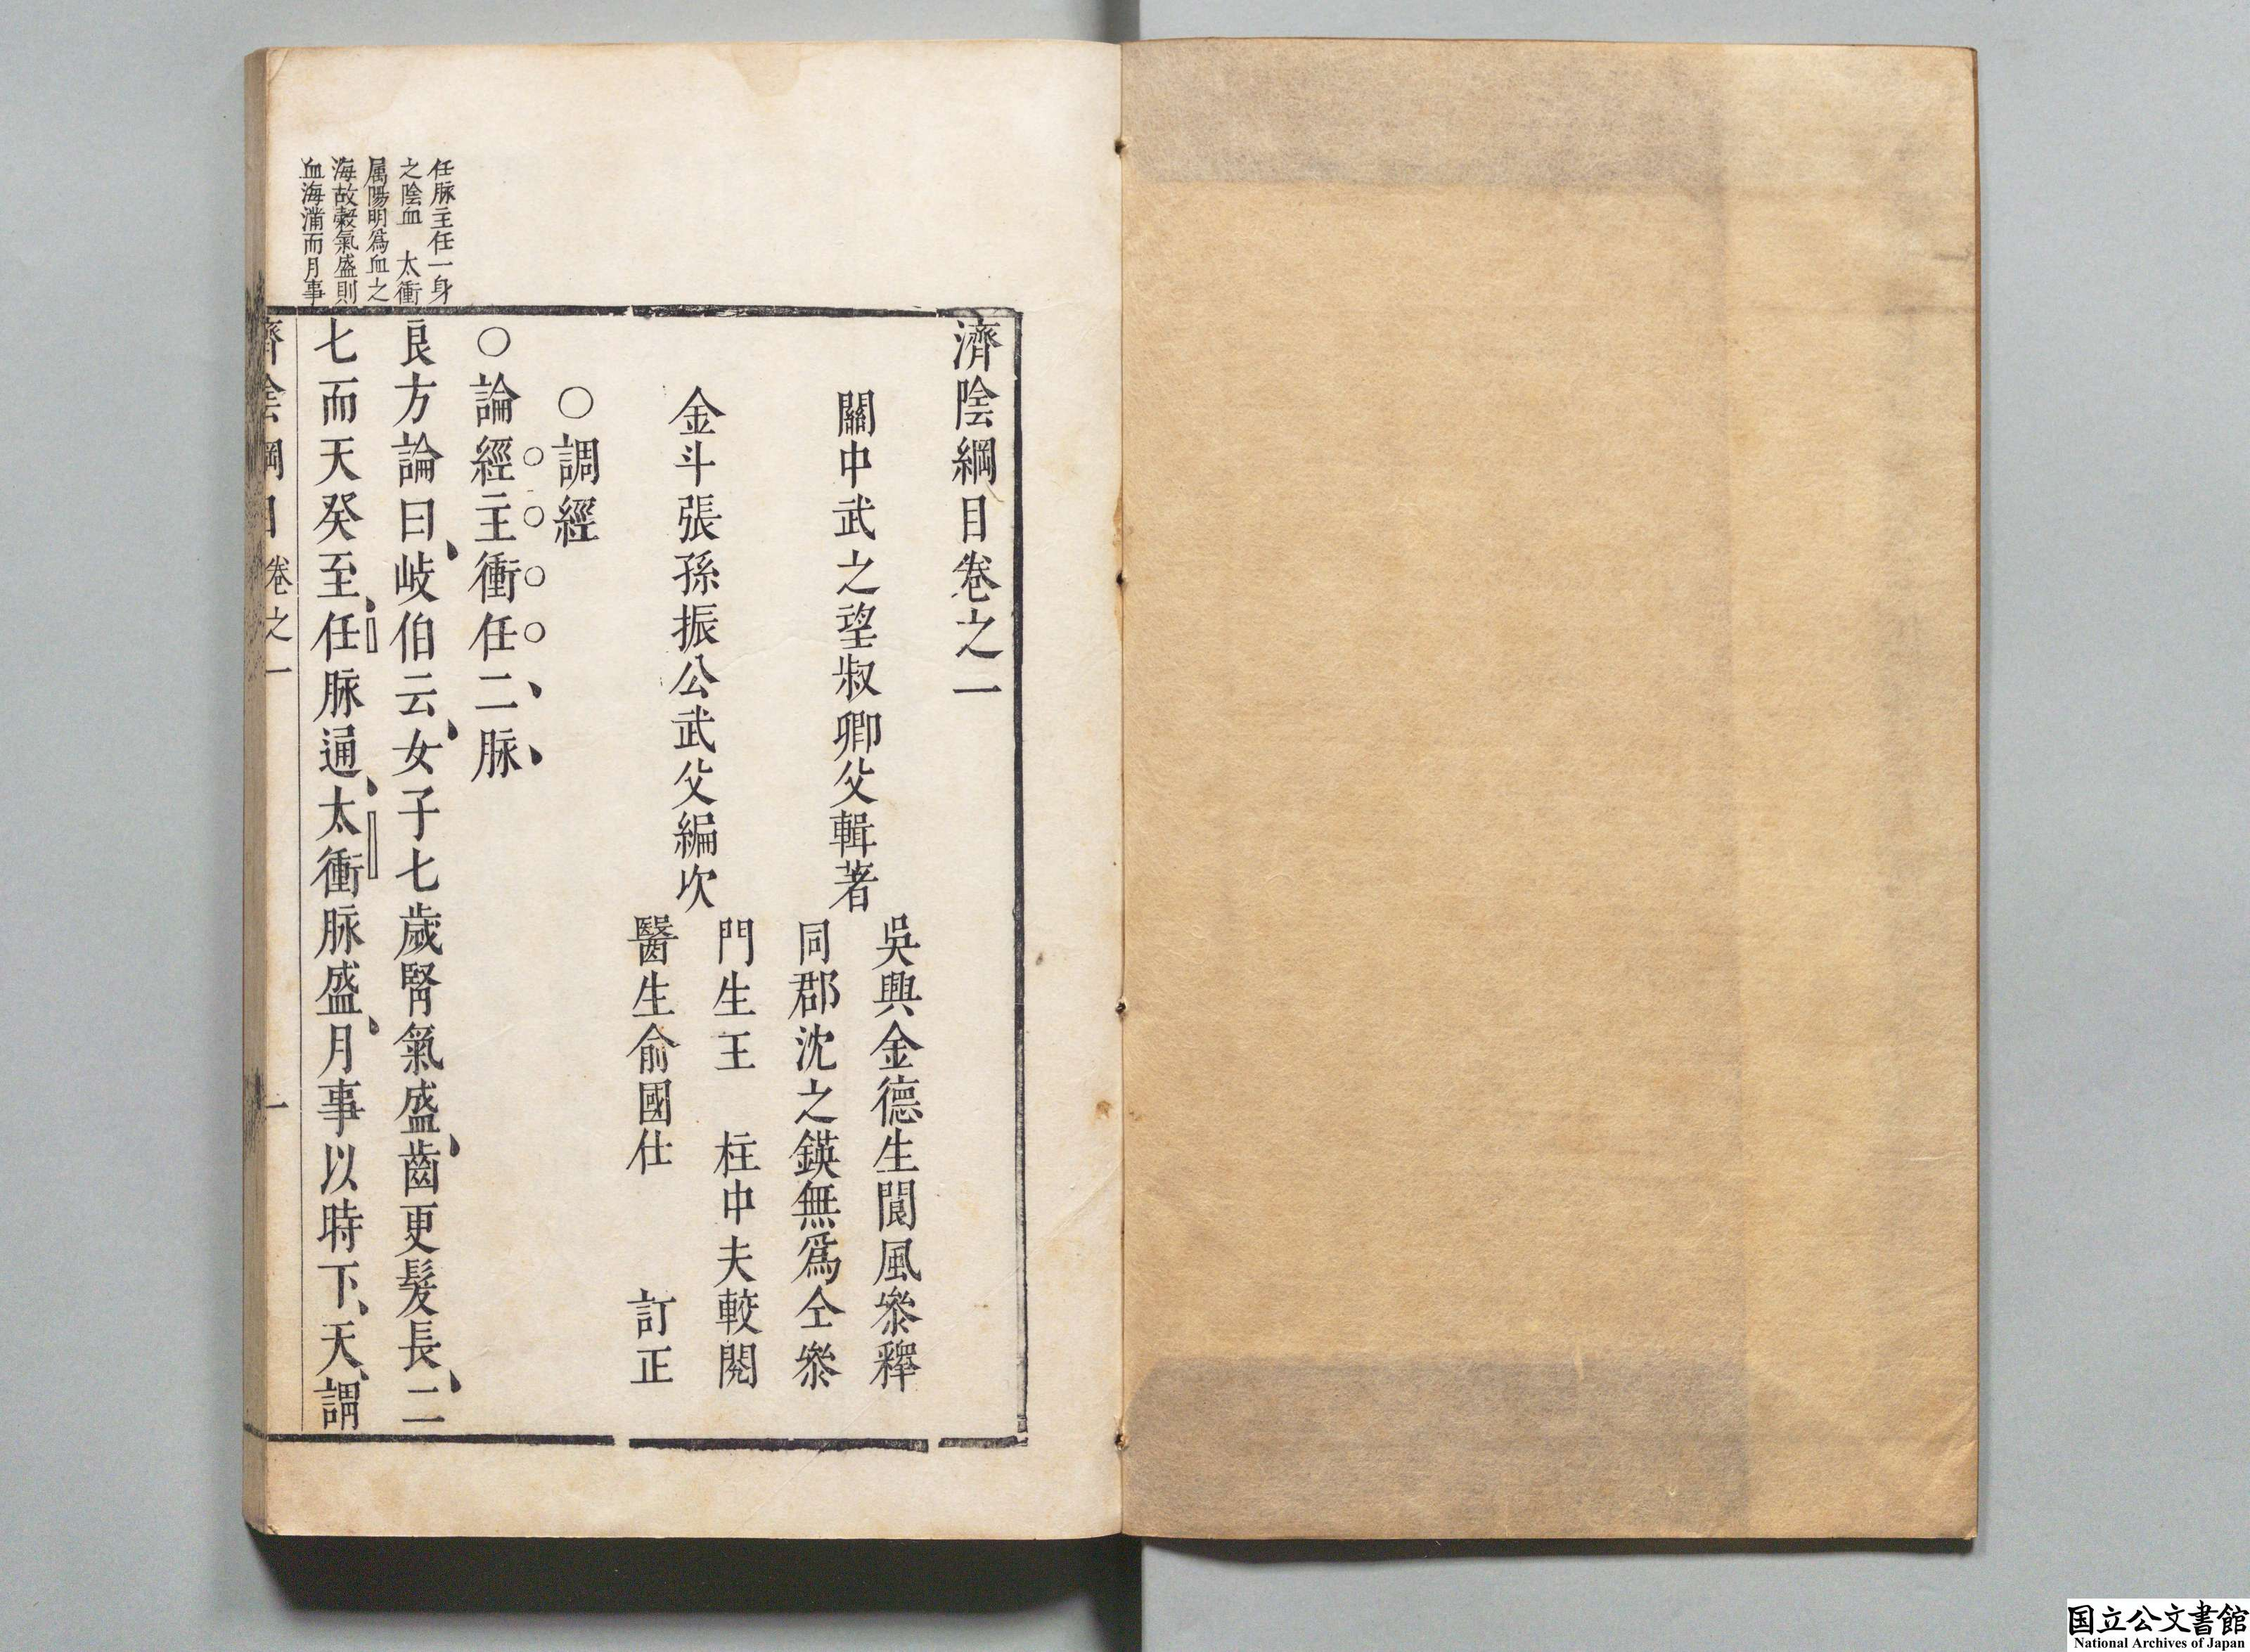 濟陰綱目卷之一
關中武之望叔卿父輯著
吳興金德生閬風參釋
同郡沈之鍈無爲仝參
金斗張孫振公武父編次
門生王　柱中夫較閱
醫生俞國仕　　訂正
○調經
○論經主衝任二脉
良方論曰、岐伯云、女子七歲腎氣盛、齒更髮長、二
七而天癸至、任脉通、太衝脉盛、月事以時下、天、謂
任脉主任一身
之陰血　太衝
属陽明爲血之
海故穀氣盛則
血海滿而月事
濟陰綱目　卷之一　一
国立公文書館
National Archives of Japan